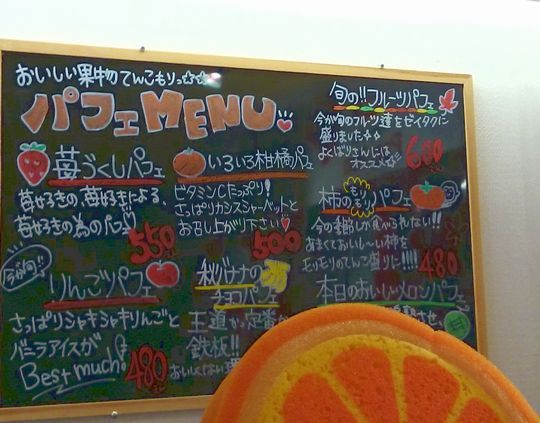 おいしい果物てんこもりっ☆☆
パフェMENU♡
苺づくしパフェ
苺好きの苺好きによる、
苺好きの為のパフェ♡
550
いろいろ柑橘パフェ
ビタミンCたっぷり!
さっぱりカシスシャーベットと
お召し上がり下さい♡
500
旬の!!フルーツパフェ
今が旬のフルーツ達をゼイタクに
盛りました☆☆
よくばりさんには
オススメ☆!!
600
柿もりもりパフェ
今の季節しか食べられない!!
あまくておいし〜い柿を
モリモリのてんこ盛りに!!!!
480
今が旬!!
りんごパフェ
さっぱりシャキシャキりんごと
バニラアイスが
Best much!
480
秋バナナの
王国パフェ
王道か、定番か
鉄板!!
おいしくない
本日のおいしいメロンパフェ